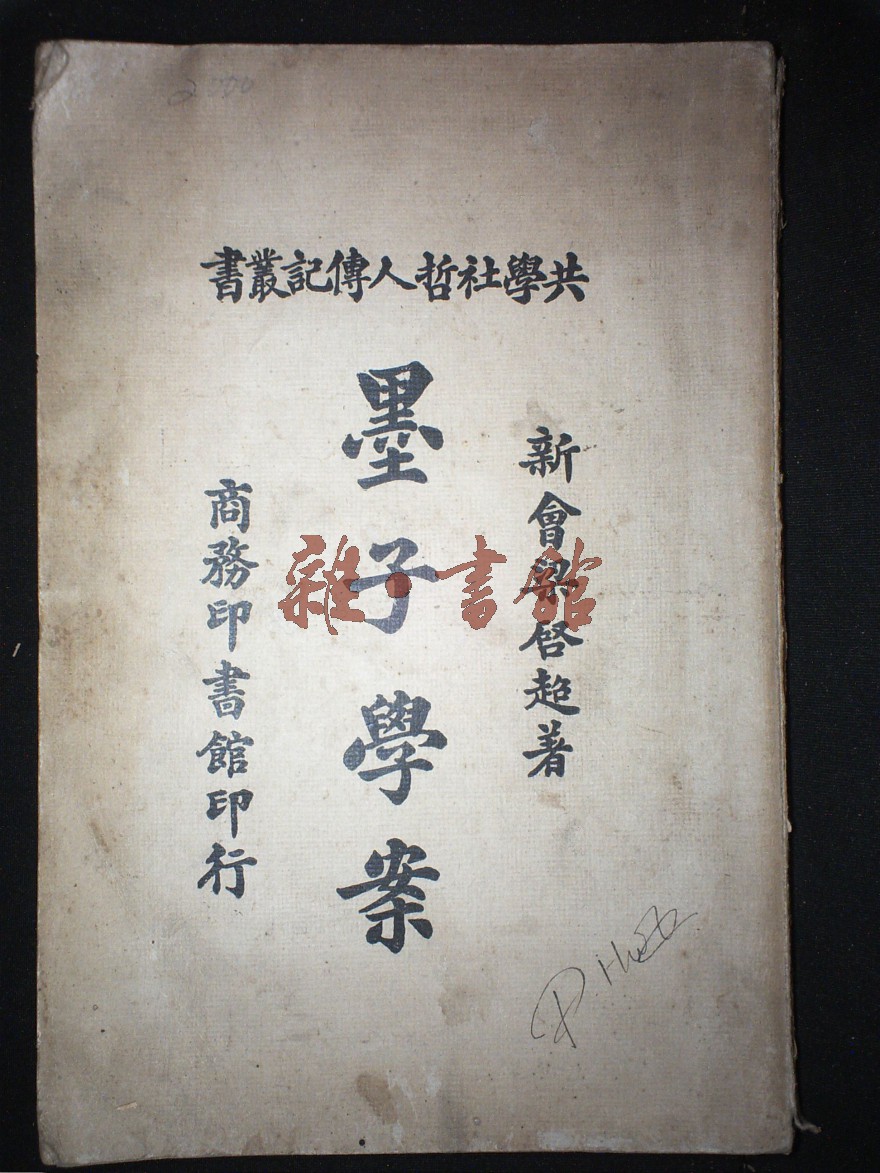 共學社哲人傳記叢書
新會梁啓超著
墨子學案
商務印書館印行
雜·書館
2000